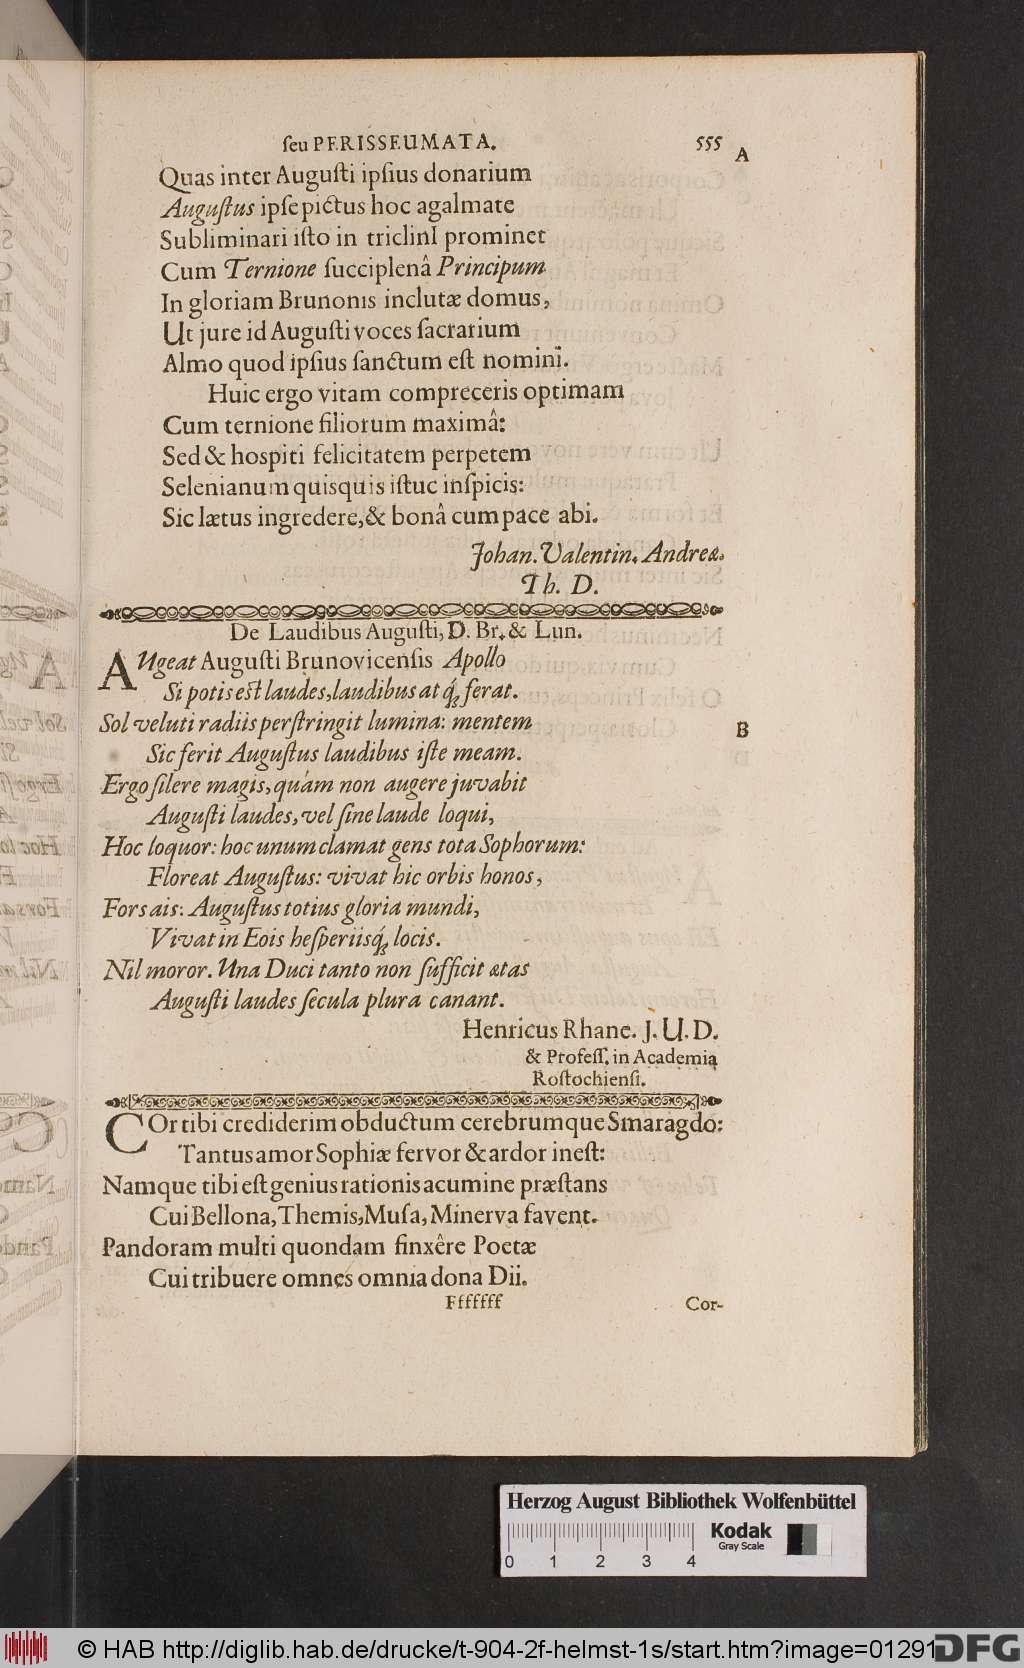 ſeu PERISSEUMATA. 555
A
Quas inter Auguſti ipſius donarium
Auguſtus ipſe pictus hoc agalmate
Subliminari iſto in triclinI prominet
Cum Ternione ſucciplenâ Principum
In gloriam Brunonis inclutæ domus,
Ut jure id Auguſti voces ſacrarium
Almo quod ipſius ſanctum eſt nomini.
Huic ergo vitam compreceris optimam
Cum ternione filiorum maximâ:
Sed & hospiti felicitatem perpetem
Selenianum quisquis iſtuc inſpicis:
Sic lætus ingredere, & bonâ cum pace abi.
Johan. Valentin. Andreæ.
Th. D.
De Laudibus Auguſti, D. Br. & Lun.
AUgeat Auguſti Brunovicenſis Apollo
Si potis eſt laudes, laudibus at q́; ferat.
Sol veluti radiis perſtringit lumina: mentem
B
Sic ferit Auguſtus laudibus iſte meam.
Ergo ſilere magis, quàm non augere juvabit
Auguſti laudes, vel ſine laude loqui,
Hoc loquor: hoc unum clamat gens tota Sophorum:
Floreat Auguſtus: vivat hic orbis honos,
Fors ais: Auguſtus totius gloria mundi,
Vivat in Eois heſperiisq́; locis.
Nil moror. Una Duci tanto non ſufficit ætas
Auguſti laudes ſecula plura canant.
Henricus Rhane. J. U. D.
& Profeſſ. in Academia
Roſtochienſi.
COr tibi crediderim obductum cerebrumque Smaragdo:
Tantus amor Sophiæ fervor & ardor ineſt:
Namque tibi eſt genius rationis acumine præſtans
Cui Bellona, Themis, Muſa, Minerva favent.
Pandoram multi quondam finxêre Poetæ
Cui tribuere omnes omnia dona Dii.
Fffffff Cor-
Herzog August Bibliothek Wolfenbüttel
Kodak
Gray Scale
0 1 2 3 4
© HAB http://diglib.hab.de/drucke/t-904-2f-helmst-1s/start.htm?image=01291
DFG